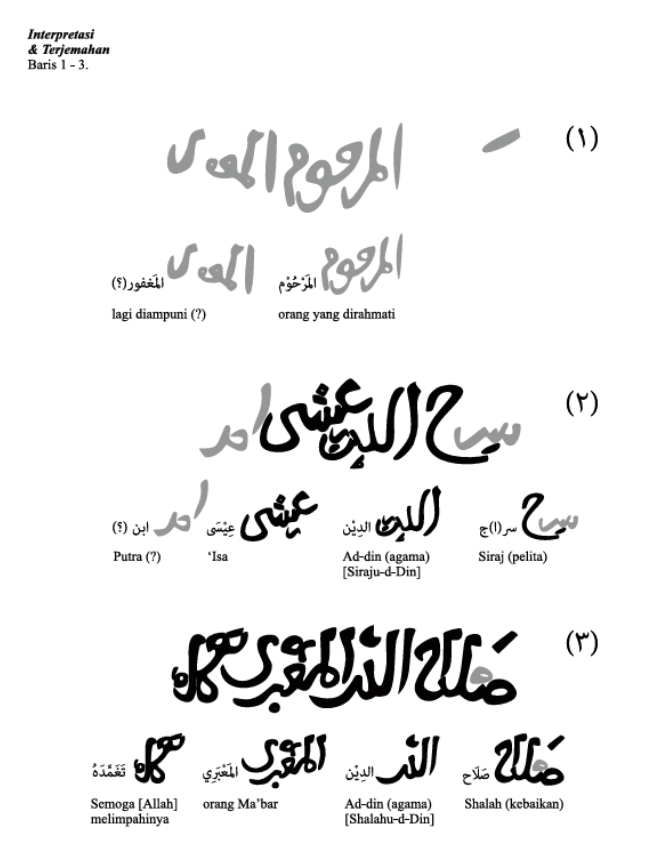 Interpretasi
& Terjemahan
Baris 1 - 3.
(١)
المرحوم
المَرْحُوْم المَغفور(؟)
orang yang dirahmati lagi diampuni (?)
(٢)
الدين عيسى
سر(ا)ج الدِيْن عِيْسَى ابن (؟)
Siraj (pelita) Ad-din (agama) ‘Isa Putra (?)
[Siraju-d-Din]
(٣)
صلاح الدين المعبري تغمده
صَلَاح الدِيْن المَعْبَرِي تَغَمَّدَهُ
Shalah (kebaikan) Ad-din (agama) orang Ma’bar Semoga [Allah]
[Shalahu-d-Din] melimpahinya